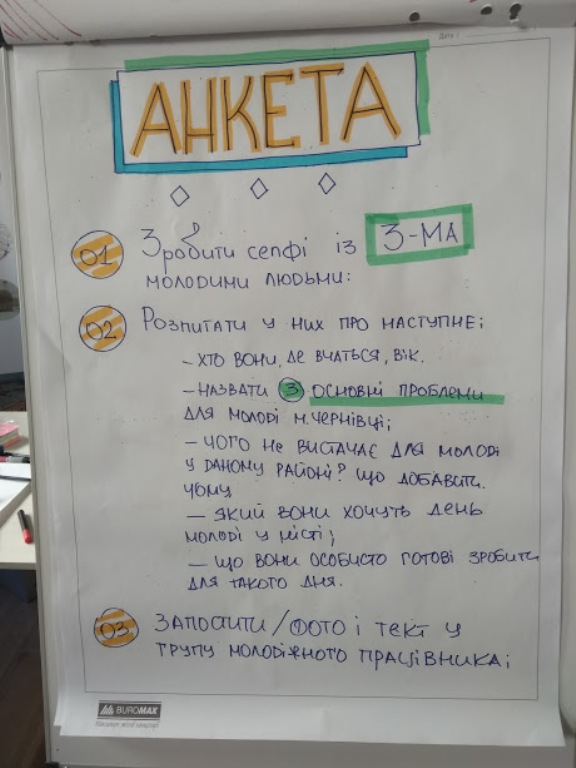 Дата:
АНКЕТА
01 Зробити селфі із 3-МА
молодими людьми:
02 Розпитати у них про наступне;
– хто вони, де вчаться, вік.
– назвати 3 основні проблеми
для молоді м. Чернівці;
– чого не вистачає для молоді
у даному районі? що добавити.
чому
– який вони хочуть день
молоді у місті;
– що вони особисто готові зробити
для такого дня.
03. Запостити/фото і тект у
групу молодіжного працівника;
BUROMAX